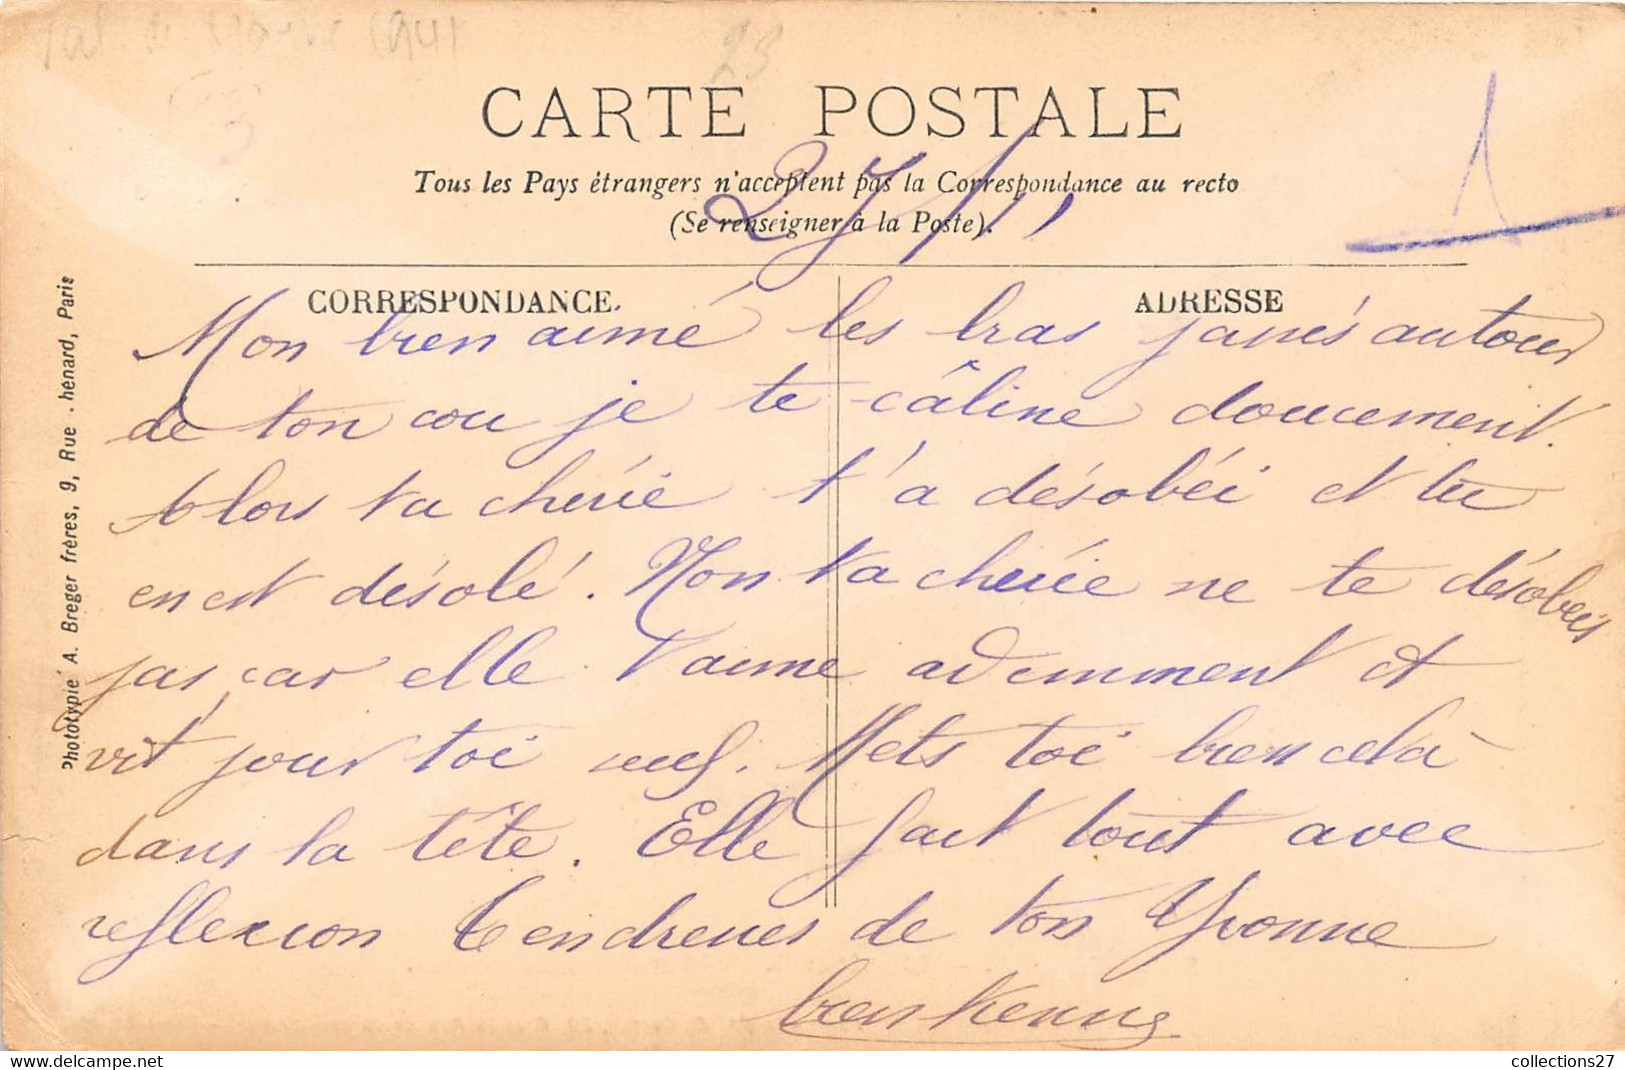 23
CARTE POSTALE
Tous les Pays étrangers n'acceptent pas la Correspondance au recto
(Se renseigner à la Poste).
1
CORRESPONDANCE.
ADRESSE
Phototypie A. Breger frères, 9, Rue Thénard, Paris
Mon bien aimé les bras passés autour
de ton cou je te câline doucement.
Alors ta chérie t'a désobéi et tu
en est désolé. Non ta chérie ne te désobeis
pas, car elle t'aime ademment et
vit pour toi seul. Mets toi bien celà
dans la tête. Elle fait tout avec
reflexion Tendresses de ton Yvonne
collections27